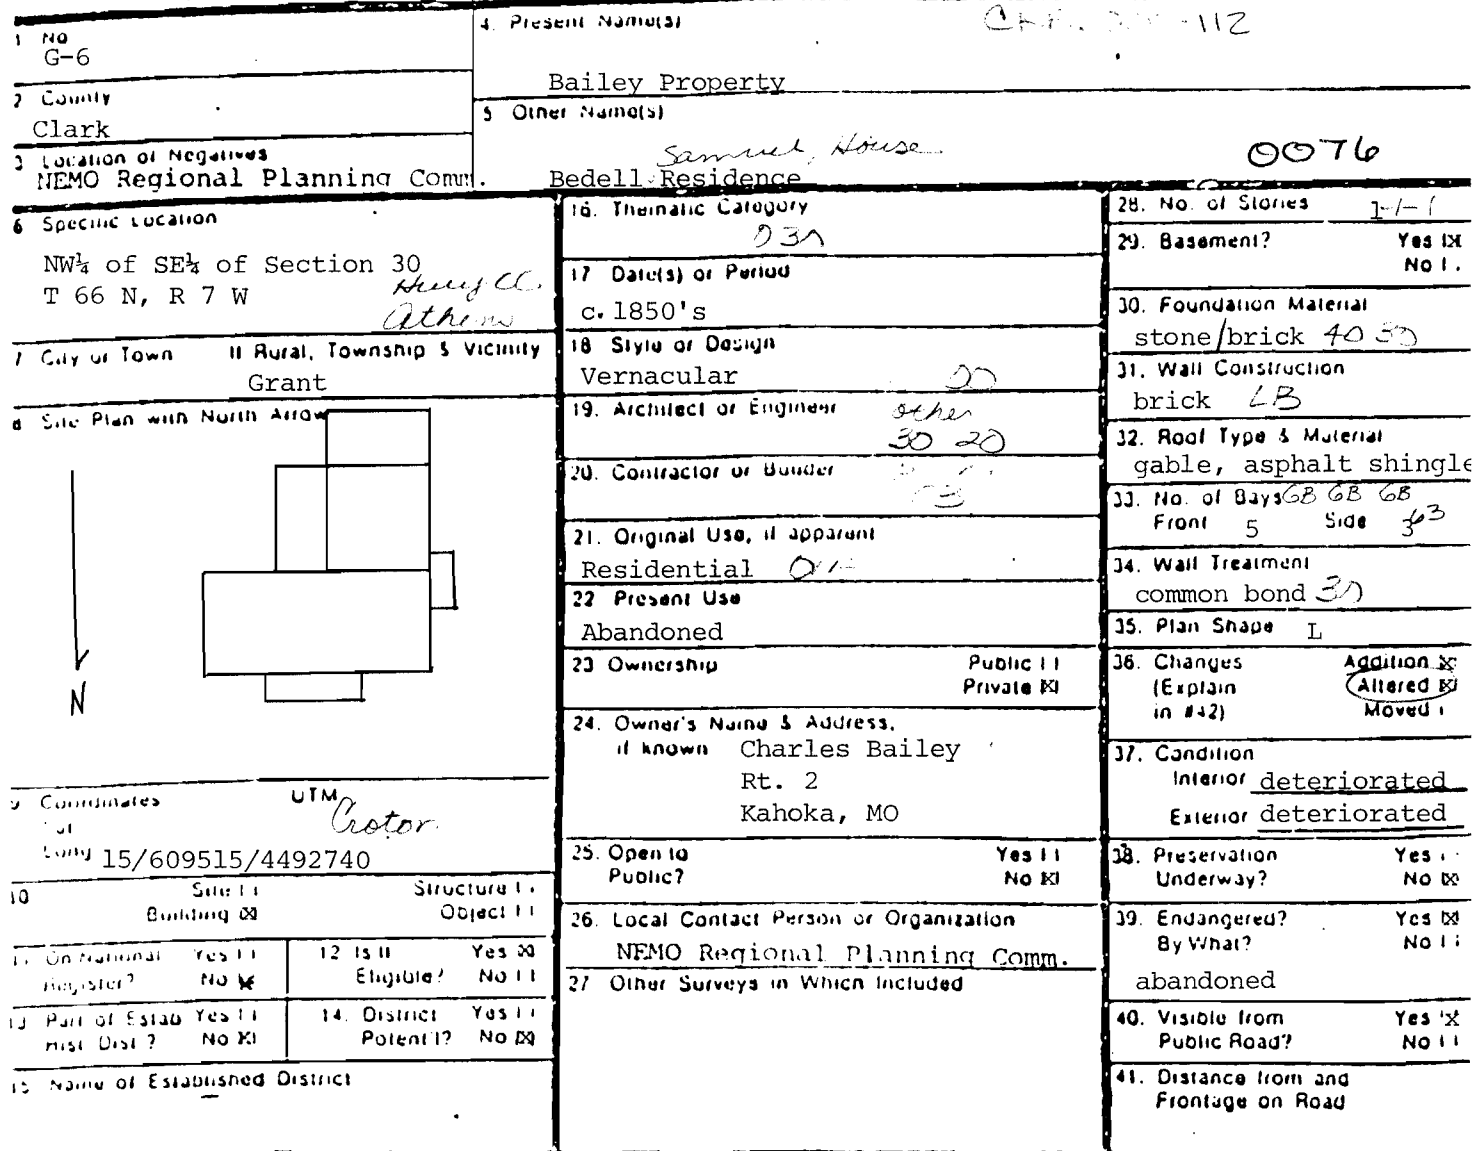 1 No
G-6
2 County
Clark
3 Location of Negatives
NEMO Regional Planning Comm.
4. Present Name(s)
-112
Bailey Property
5 Other Name(s)
Samuel, House
0076
Bedell Residence
6 Specific Location
NW¼ of SE¼ of Section 30
T 66 N, R 7 W
Athens
7 City or Town If Rural, Township & Vicinity
Grant
8 Site Plan with North Arrow
N
9 Coordinates UTM
Lat
Long 15/609515/4492740
10 Site Structure
Building ☒ Object
11 On National Register? Yes No ☒
12 Is It Eligible? Yes ☒ No
13 Part of Estab Hist Dist? Yes No ☒
14. District Potent'l? Yes No ☒
15 Name of Established District
16. Thematic Category
17 Date(s) or Period
c. 1850's
18 Style or Design
Vernacular
19. Architect or Engineer
other
30 20
20. Contractor or Builder
21. Original Use, if apparent
Residential
22 Present Use
Abandoned
23 Ownership Public
Private ☒
24. Owner's Name & Address,
if known Charles Bailey
Rt. 2
Kahoka, MO
25. Open to Yes
Public? No ☒
26. Local Contact Person or Organization
NEMO Regional Planning Comm.
27 Other Surveys in Which Included
28. No. of Stories
29. Basement? Yes ☒
No
30. Foundation Material
stone/brick 40 30
31. Wall Construction
brick LB
32. Roof Type & Material
gable, asphalt shingle
33. No. of Bays GB GB GB
Front 5 Side 3
34. Wall Treatment
common bond 30
35. Plan Shape L
36. Changes Addition ☒
(Explain Altered ☒
in #42) Moved
37. Condition
Interior deteriorated
Exterior deteriorated
38. Preservation Yes
Underway? No ☒
39. Endangered? Yes ☒
By What? No
abandoned
40. Visible from Yes ☒
Public Road? No
41. Distance from and
Frontage on Road